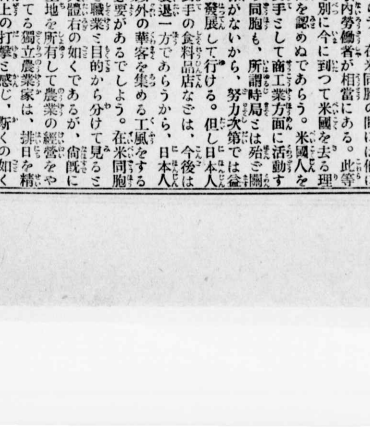 て、在米同胞の間には他に
内勞働者が相當にある。此等
別に今に到つて米國を去る理
を認めぬであらう。米國人を
手として商工業方面に活動す
同胞も、所謂時局とは殆ど關
がないから、努力次第では益
發展して行ける。但し日本人
手の食料品店などは、今後は
衰退一方であらうから、日本人
以外の華客を集める工風をする
要があるでしよう。在米同胞
職業と目的から分けて見ると
體右の如くであるが、尙既に
地を所有して農業の經營をや
てゐる獨立農業家は、排日を精
上の打擊と感じ、斯くの如く